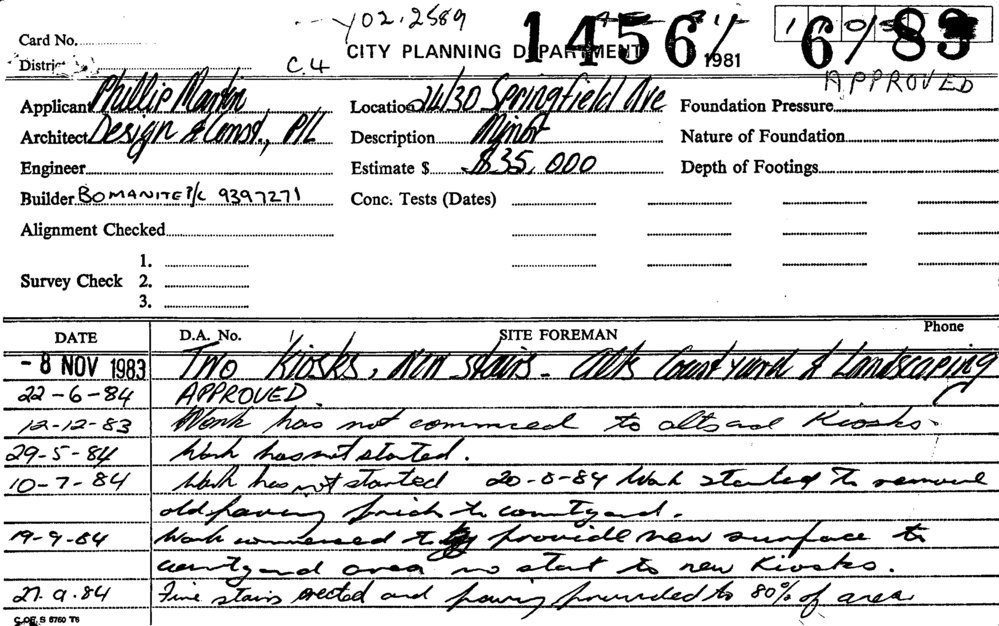 Y02.2589
Card No.
CITY PLANNING DEPARTMENT
1456/
1981
6/83
District C.4
APPROVED
Applicant Phillip Martin Location 24/30 Springfield Ave Foundation Pressure
Architect Design & Const., P/L Description Minor Nature of Foundation
Engineer Estimate $ $35,000 Depth of Footings
Builder BOMANITE P/L 9397271 Conc. Tests (Dates)
Alignment Checked
1.
Survey Check 2.
3.
DATE D.A. No. SITE FOREMAN Phone
- 8 NOV 1983 Two Kiosks, new stairs - alts Courtyard & Landscaping
22-6-84 APPROVED.
12-12-83 Work has not commnced to alts and Kiosks.
29-5-84 Work has not started.
10-7-84 Work has not started 20-8-84 Work started to remove
old paving brick to courtyard.
19-9-84 Work commenced to provide new surface to
courtyard area no start to new Kiosks.
27.9.84 Fire stairs erected and paving provided to 80% of area
C. OF S 5760 T6